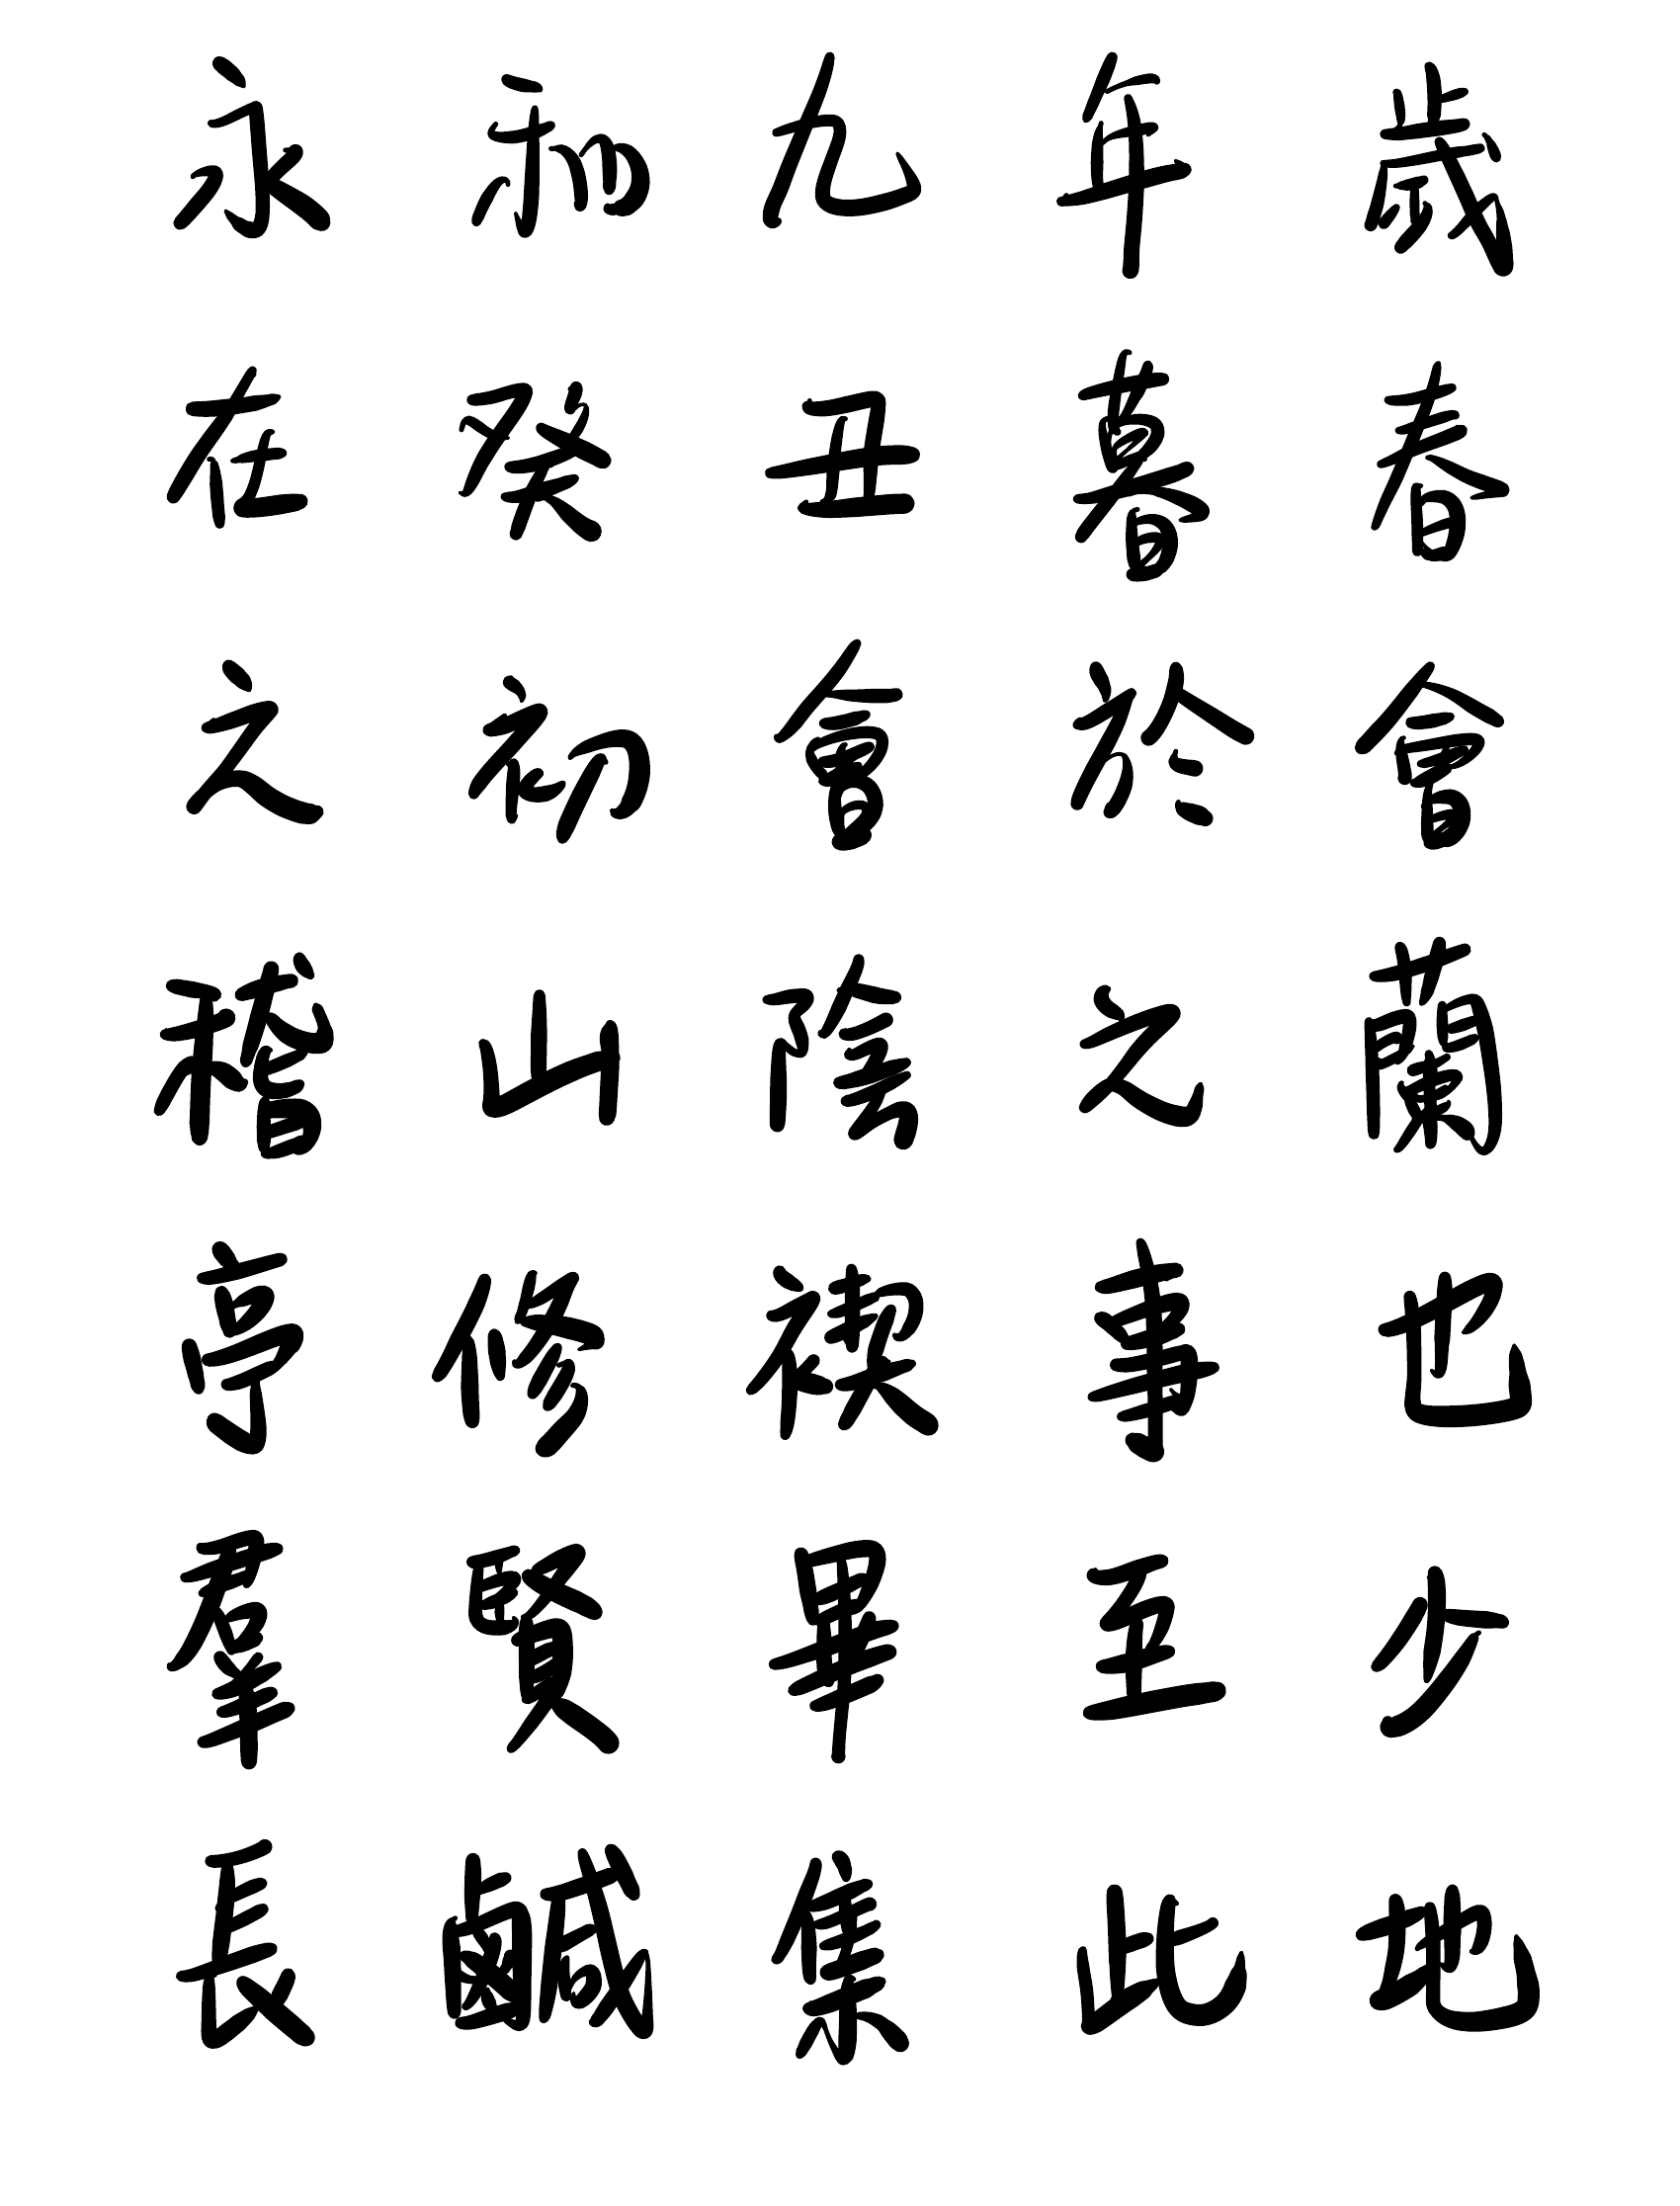 永和九年歲
在癸丑暮春
之初會於會
稽山陰之蘭
亭修禊事也
羣賢畢至少
長鹹集此地